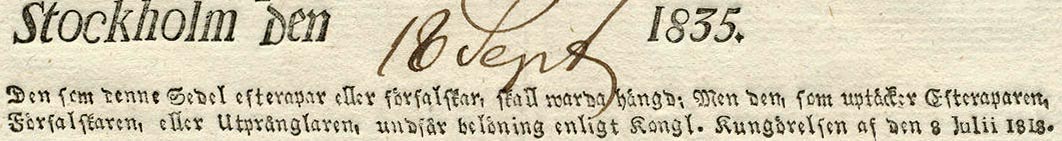 Stockholm den 18 Sept 1835.
Den som denne Sedel efterapar eller förfalskar, skall warda hängd; Men den, som uptäcker Efteraparen,
Förfalskaren, eller Utprånglaren, undfår belöning enligt Kongl. Kungörelsen af den 8 Julii 1818.